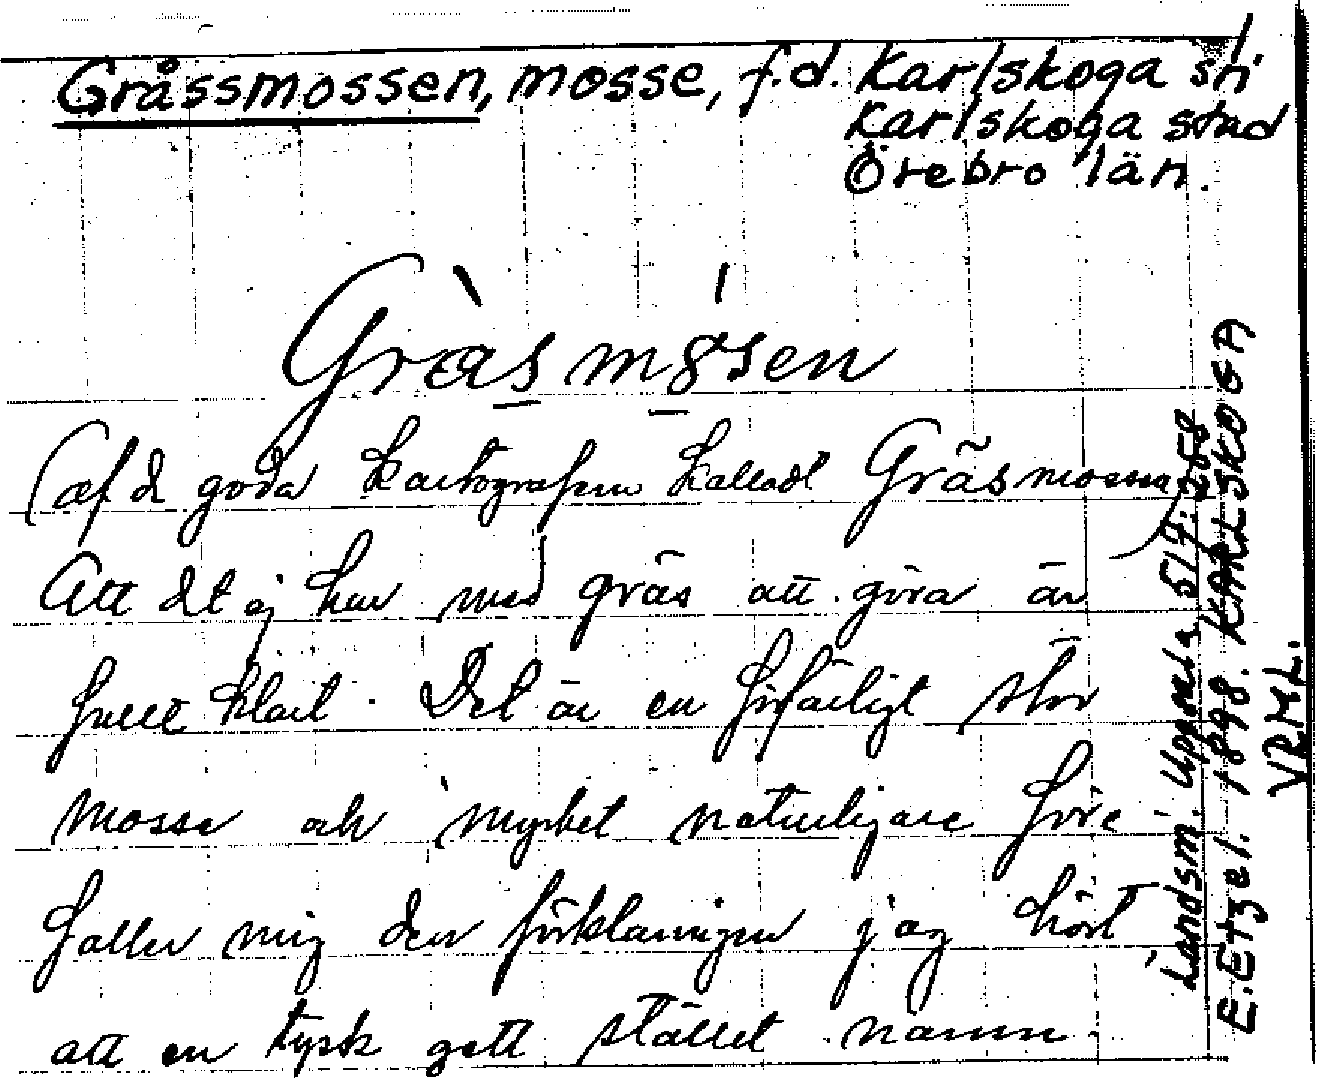 1
Gråssmossen, mosse, f.d. Karlskoga sn
Karlskoga stad
Örebro län.
Gràsmósen
(af de goda kartografern kalladt Gräsmossen)
Att det ej har med gräs att göra är
fullt klart. Det är en förfärligt stor
mosse och mycket naturligare före-
faller mig den förklaringen jag hört,
att en tysk gett stället namn.
Landsm. Uppsala 517:258
E. Etzel. 1898. KARLSKOGA
VRML.